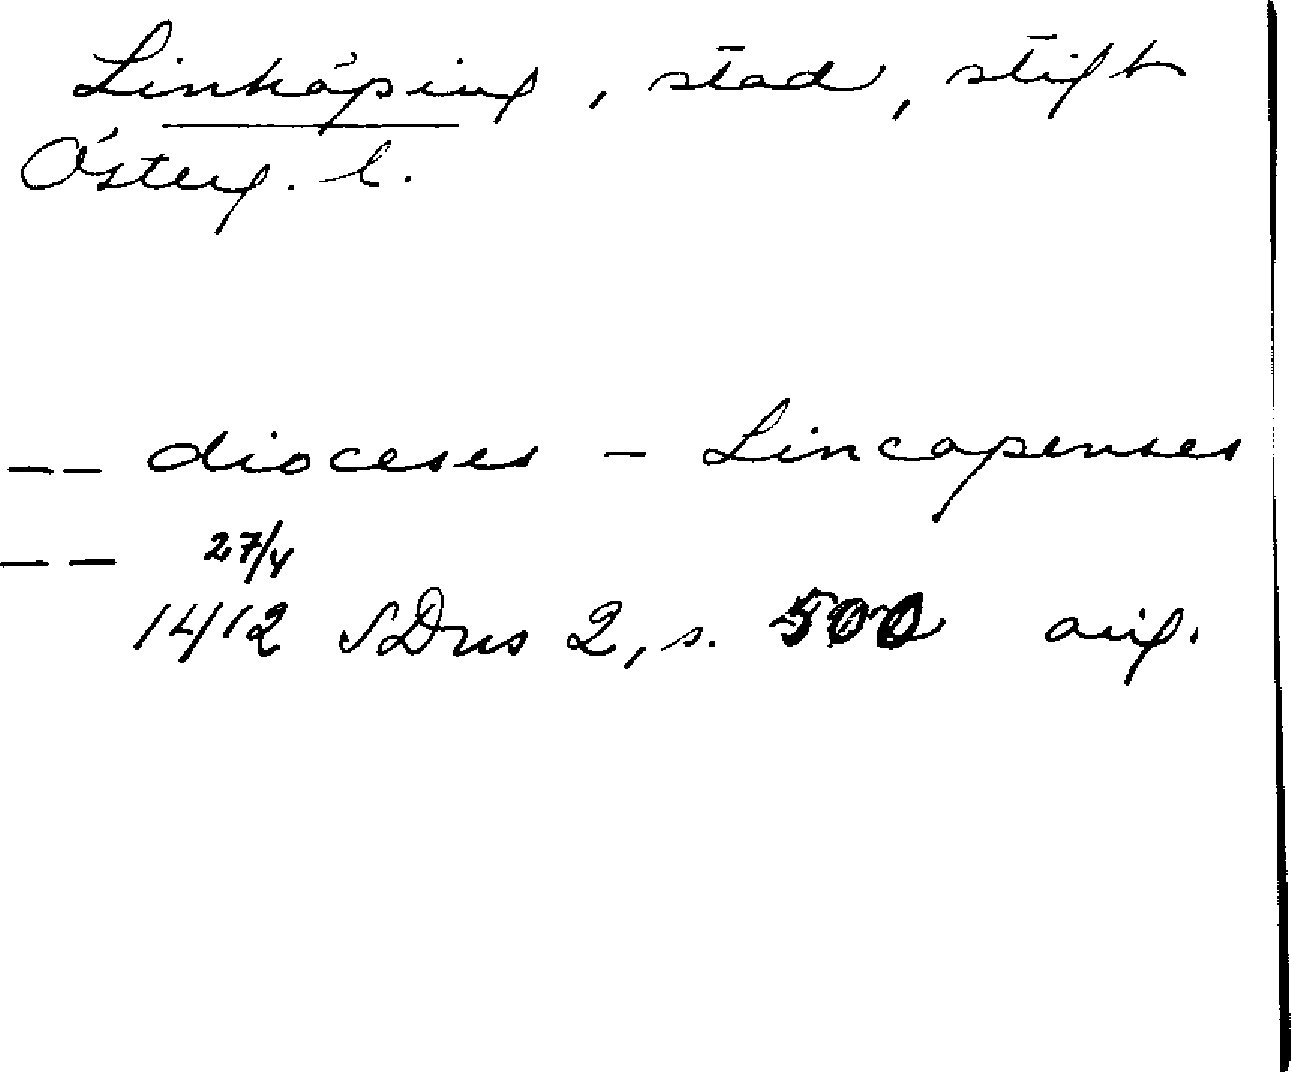 Linköping, stad, stift
Österg. l.
-- dioceses - Lincopenses
-- 27/4
1412 SDns 2, s. 500 orig.